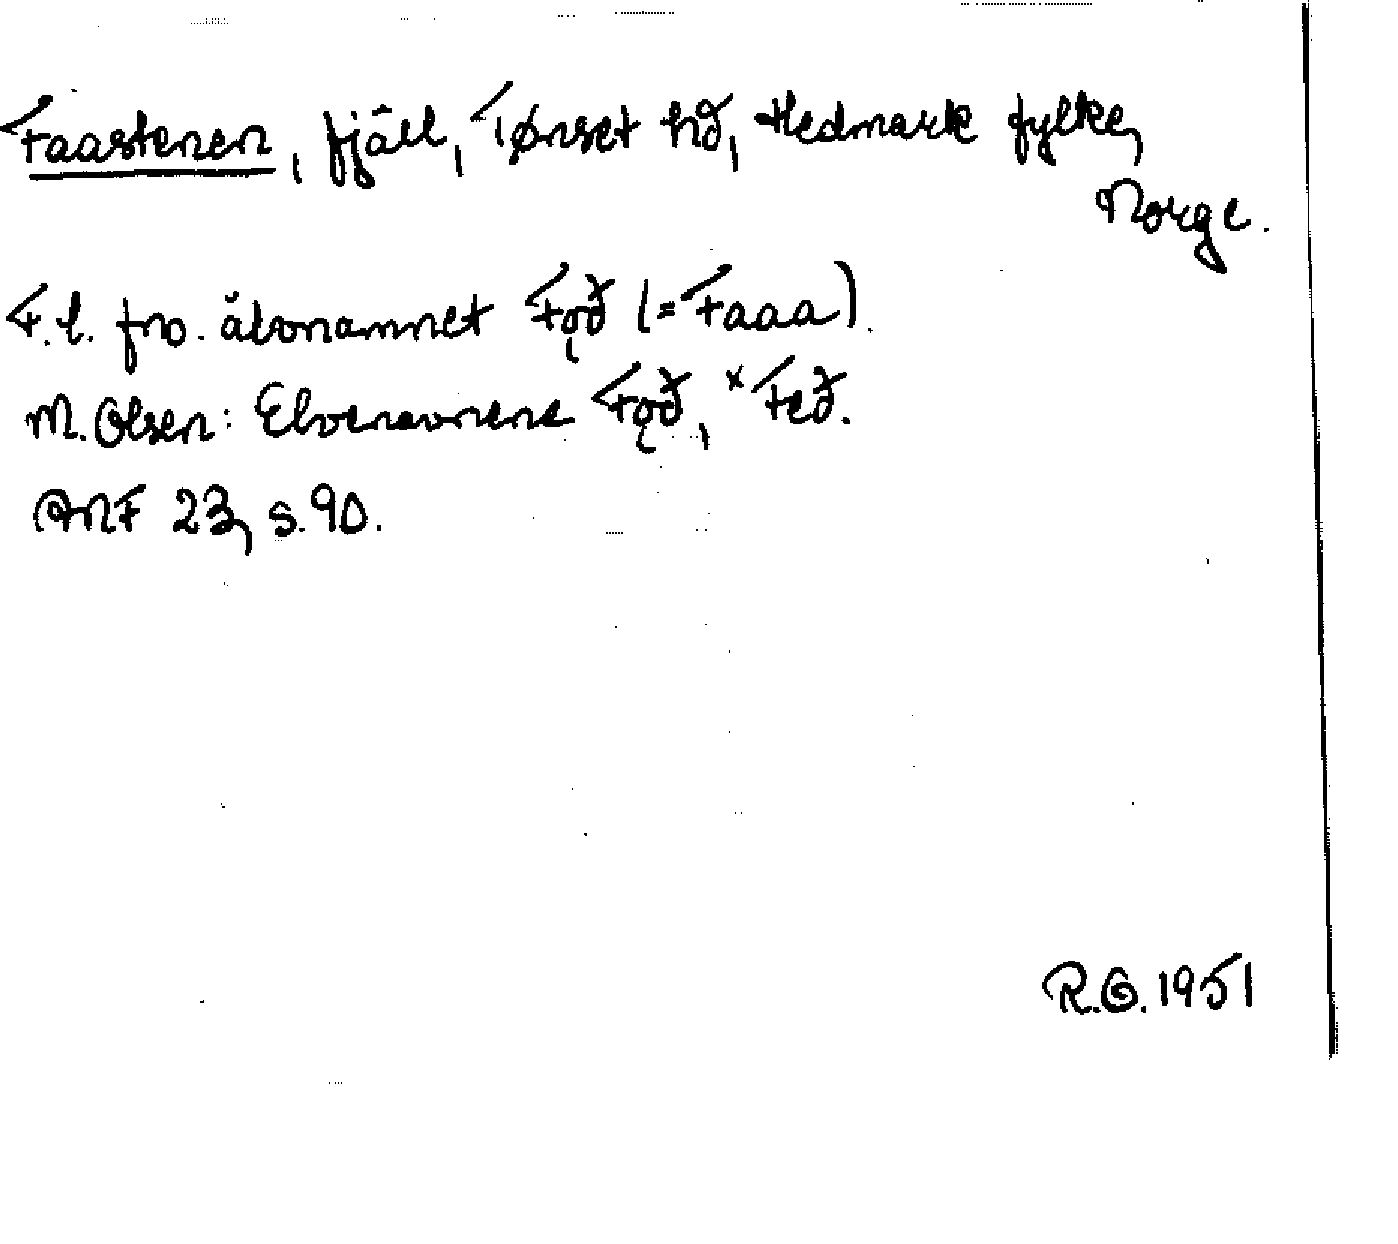 Faastenen, fjäll, Tønset hd, Hedmark fylke,
Norge.
F.l. fno. älvnamnet Fǫð (= Faaa).
M. Olsen: Elvenavnene Fǫð, *Feð.
ANF 23, s. 90.
R.G. 1951